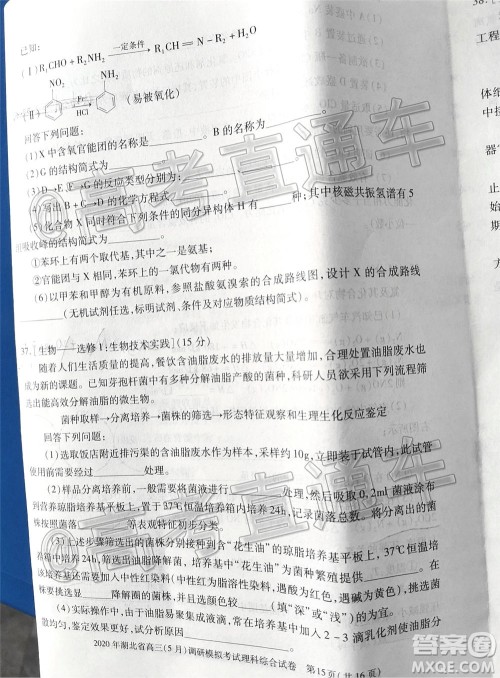 已知:
(Ⅰ) R₁CHO + R₂NH₂ 一定条件→ R₁CH=N-R₂ + H₂O
NO₂ NH₂
(Ⅱ) Fe HCl (易被氧化)
回答下列问题:
(1)X中含氧官能团的名称是 。B的名称为
(2)G的结构简式为
(3)D→E、F→G的反应类型分别为:
(4)写出
(5)化合物X同时符合下列条件的同分异构体H有 种;其中核磁共振氢谱有5
吸收峰的结构简式为
①苯环上有两个取代基,其中之一是氨基;
②官能团与X相同,苯环上的一氯代物有两种。
(6)以甲苯和甲醇为有机原料,参照盐酸氨溴索的合成路线图,设计X的合成路线
(无机试剂任选,标明试剂、条件及对应物质结构简式)
37.[生物——选修1:生物技术实践](15分)
随着人们生活质量的提高,餐饮含油脂废水的排放量大量增加,合理处置油脂废水已
成为新的课题。已知芽孢杆菌中有多种分解油脂产酸的菌种,科研人员欲采用下列流程,
选出能高效分解油脂的微生物。
菌种取样→分离培养→菌株的筛选→形态特征观察和生理生化反应鉴定
回答下列问题:
(1)选取饭店附近排污渠的含油废水作为样本,采样后取约10g,装于试管内,此试管
使用前需要经过 处理。
(2)样品分离培养前,一般需要将菌液进行 ,到后来吸取0.2ml菌液涂布
到营养琼脂培养基平板上,置于37℃恒温培养箱内培养24h,记录菌落总数。将分离出的菌
株按照菌落 等表观特征初步分类。
(3)上述步骤筛选出的菌株分别接种到含“花生油”的琼脂培养基平板上,37℃恒温培
养箱中培养24h,培养基中“花生油”为菌种繁殖提供 。在
培养基中常加入中性红染料(中性红为脂溶性染料,遇酸为红色,遇碱为黄色),筛选的菌
株要挑选显 降解圈的菌株,原因是
(4)实际操作中,由于油脂易聚集成液滴,故需在培养基中加入2~3滴乳化剂使油脂分
散,鉴定效果更好,试分析原因
2020年湖北省高三(5月)调研模拟考试理科综合试卷 第15页(共16页)
38.
工程
体统
中控
器官
@高考直通车
@高考直通车
答案圈
MXQE.COM